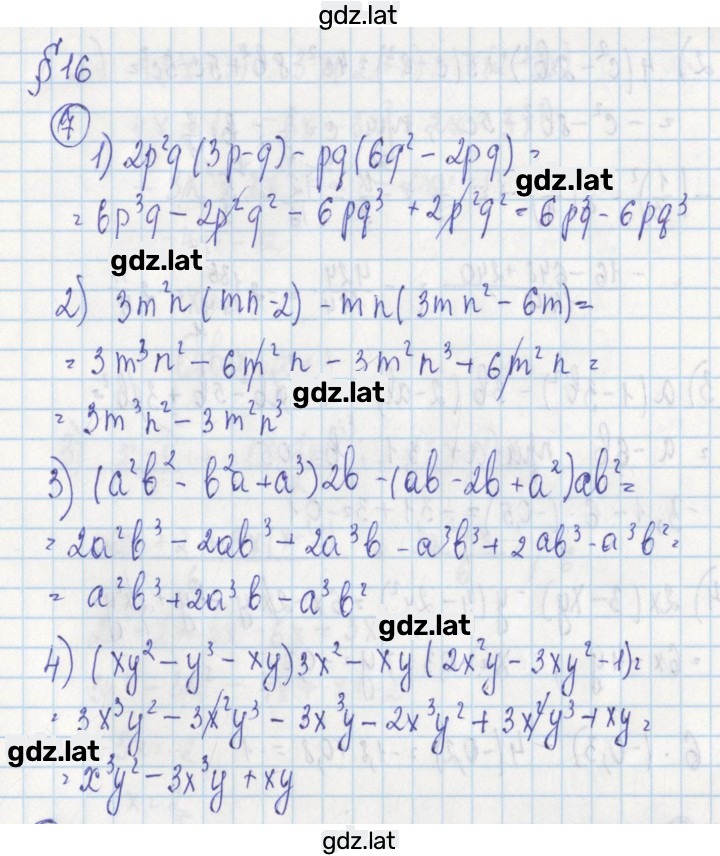 gdz.lat
§16
7
1) 2p²q (3p-q) - pq (6q² - 2pq) =
gdz.lat
= 6p³q - 2p²q² - 6pq³ + 2p²q² = 6p³q - 6pq³
gdz.lat
2) 3m²n (mn-2) - mn (3mn² - 6m) =
= 3m³n² - 6m²n - 3m²n³ + 6m²n =
gdz.lat
= 3m³n² - 3m²n³
3) (a²b² - b²a + a³) 2b - (ab - 2b + a²) ab² =
= 2a²b³ - 2ab³ + 2a³b - a²b³ + 2ab³ - a³b² =
= a²b³ + 2a³b - a³b²
gdz.lat
4) (xy² - y³ - xy) 3x² - xy (2x²y - 3xy² - 1) =
= 3x³y² - 3x²y³ - 3x³y - 2x³y² + 3x²y³ + xy =
gdz.lat
= x³y² - 3x³y + xy
gdz.lat